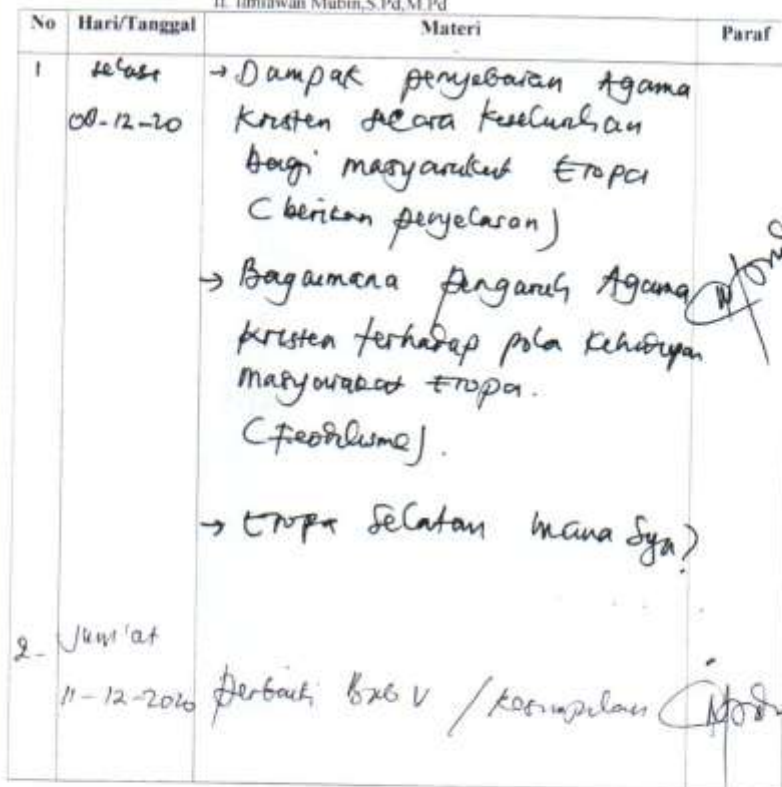 II. Imiawan Mubin,S.Pd,M.Pd
No Hari/Tanggal Materi Paraf
1 Selasa → Dampak penyebaran Agama
08-12-20 Kristen secara keseluruhan
bagi masyarakat Eropa
(berikan penjelasan)
→ Bagaimana pengaruh Agama
Kristen terhadap pola kehidupan
masyarakat Eropa.
(Feodalisme).
→ Eropa Selatan mana sya?
2- Jum'at
11-12-2020 Perbaiki Bab V / Kesimpulan